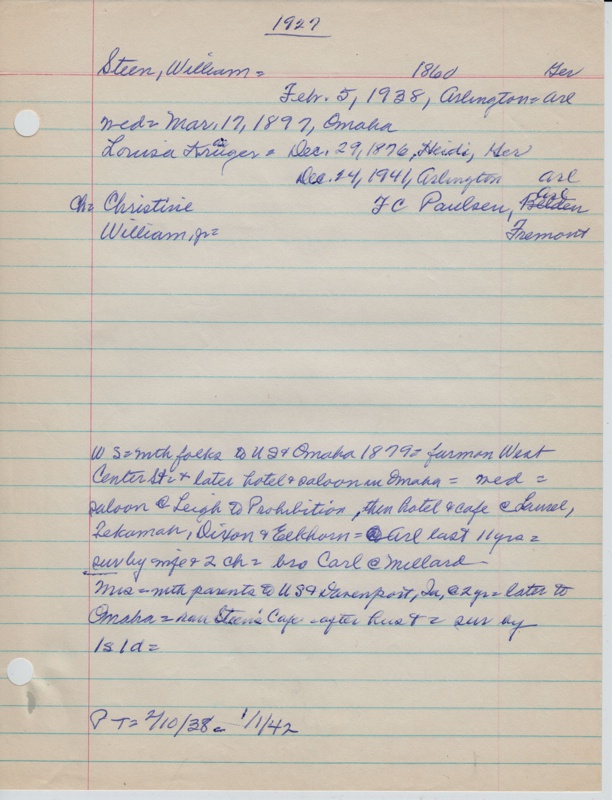 1927
Steen, William = 1860 Ger
Febr. 5, 1938, Arlington = Arl
wed = Mar. 17, 1897, Omaha
Louisa Krüger = Dec. 29, 1876, Heide, Ger
Dec. 24, 1941, Arlington Arl
ch = Christine F C Paulsen, Arl
William, jr = Fremont
W S = with folks to US & Omaha 1879 = farm on West
Center St & later hotel & saloon in Omaha = wed =
saloon @ Leigh to Prohibition, then hotel & cafe @ Laurel,
Tekamah, Dixon & Elkhorn = Arl last 11 yrs =
sur by wife & 2 ch = bro Carl @ Millard
Mrs = with parents to US & Davenport, Ia, @ 2 yr = later to
Omaha = ran Steen's Cafe after hus + = sur by
1s 1d =
P T = 2/10/38 = 1/1/42